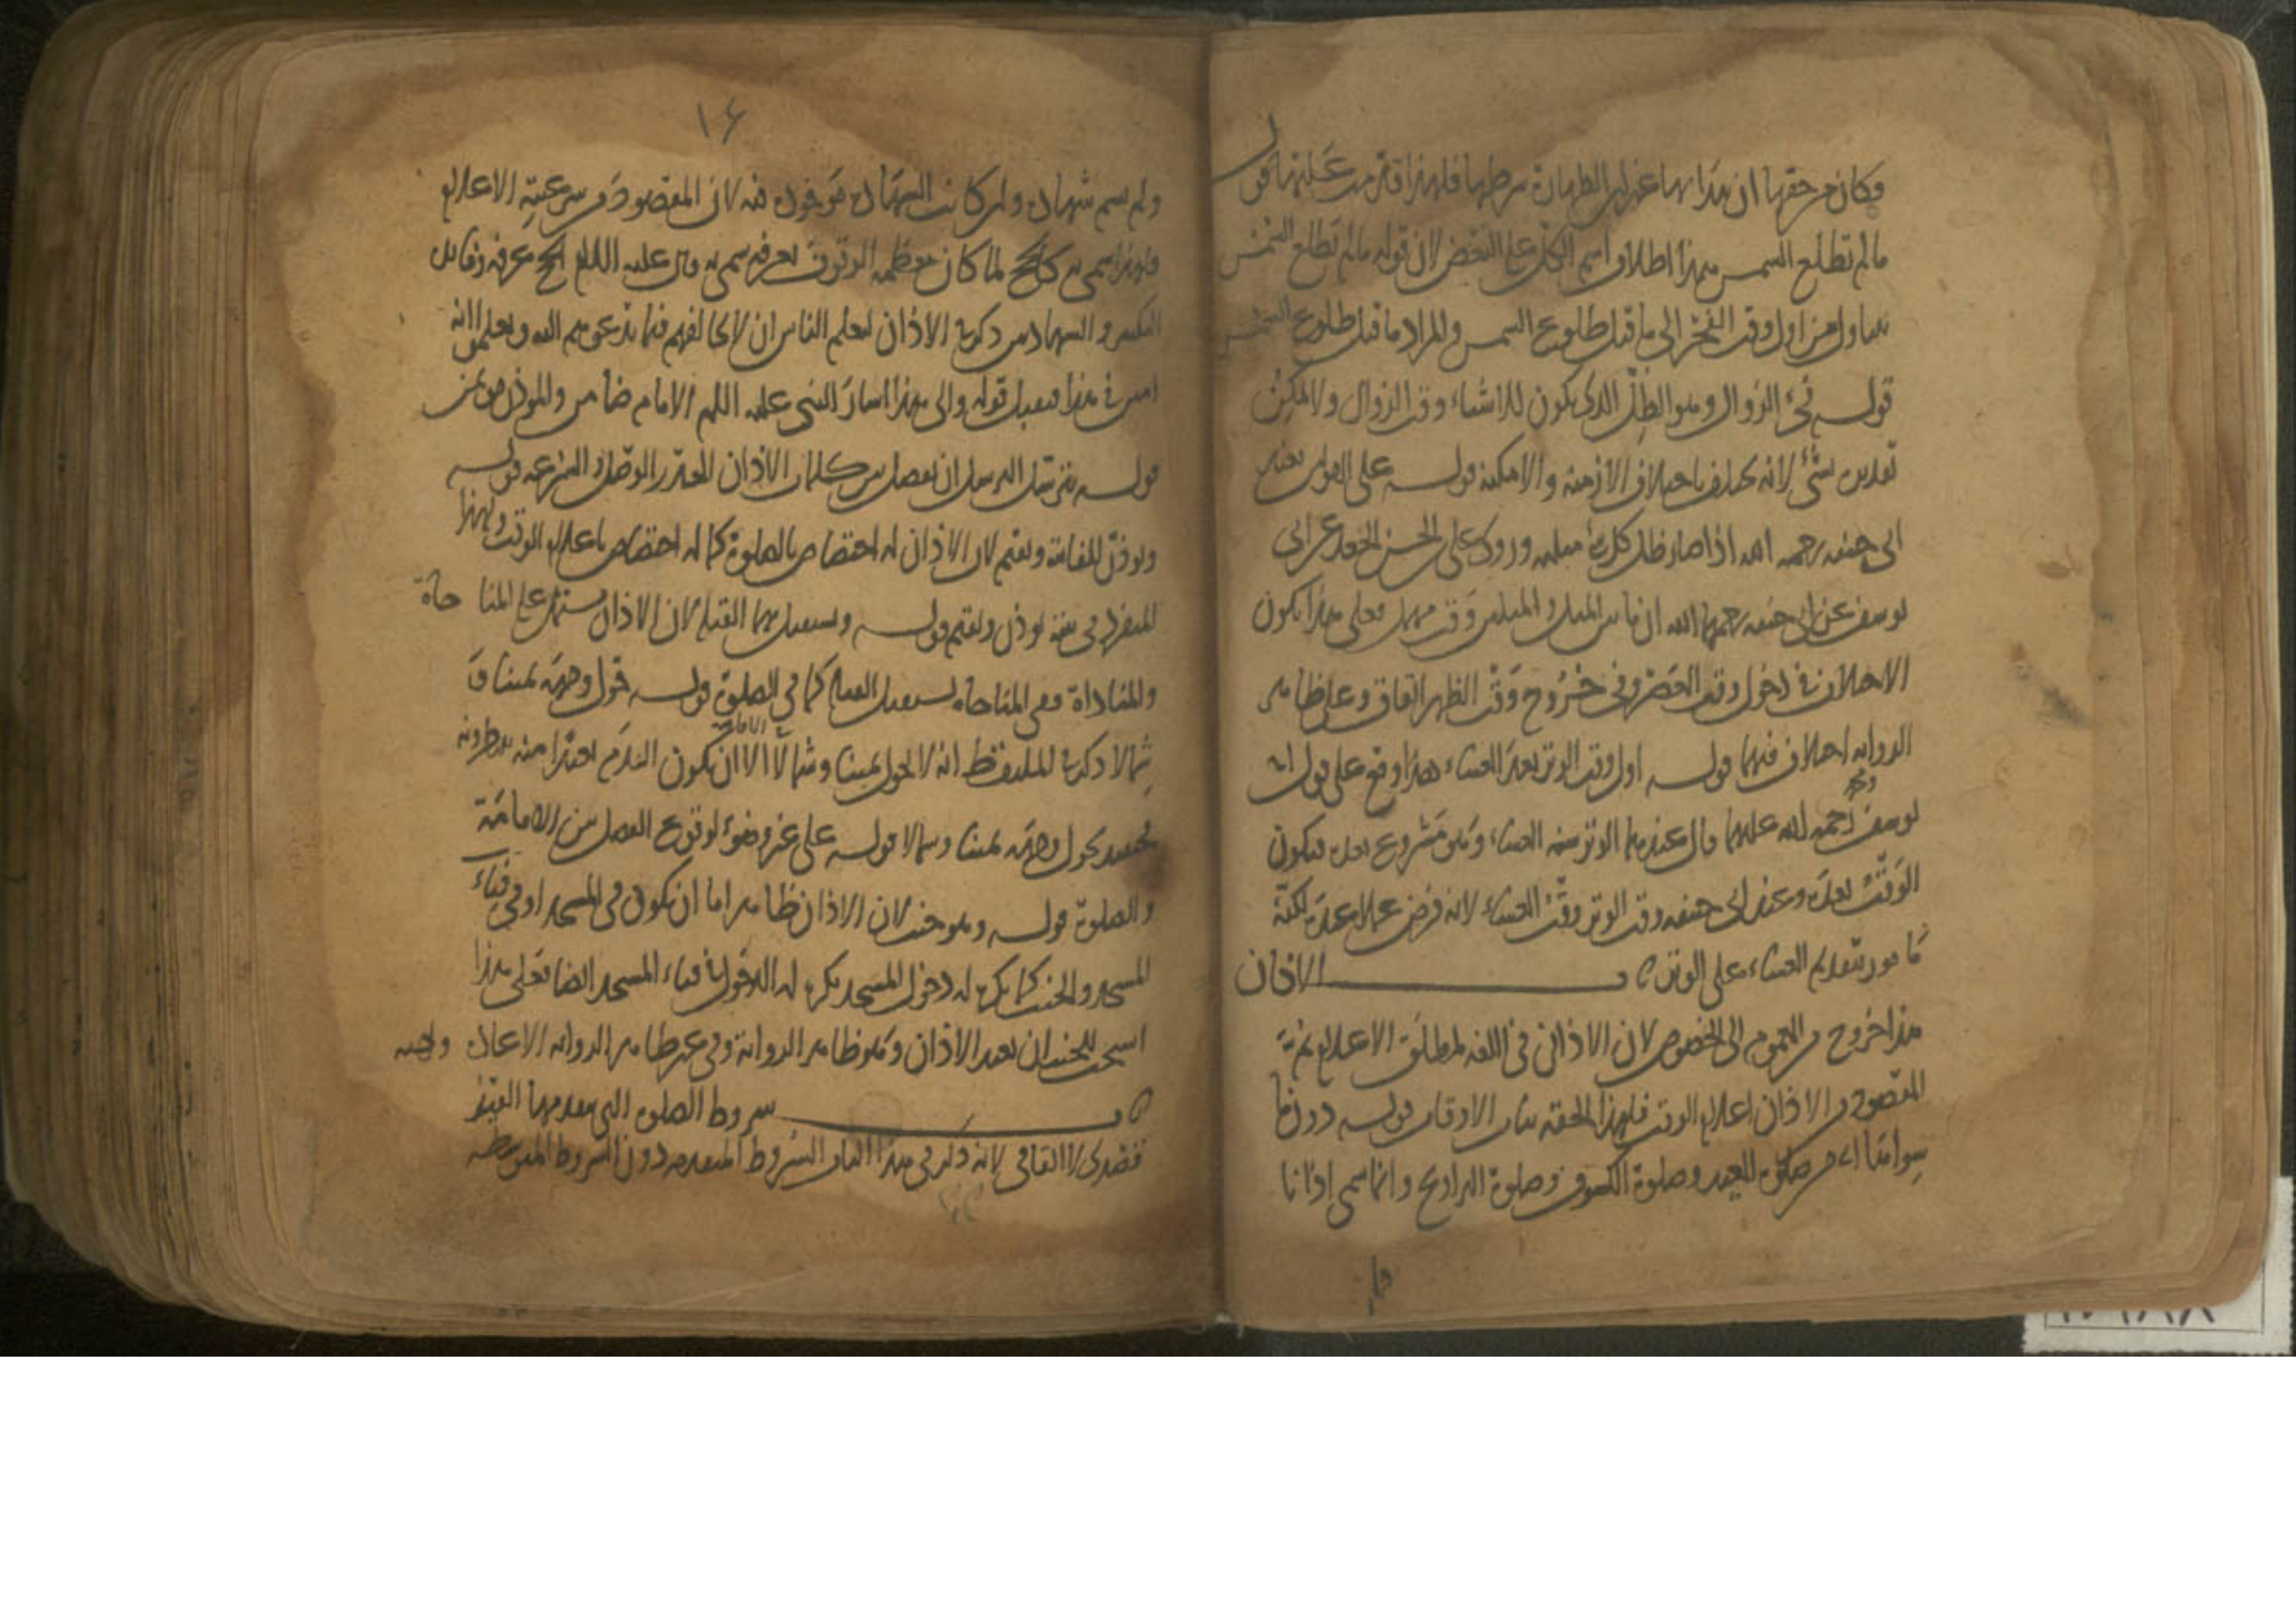 وكان من حقها ان يبدا بها غير ان الطهارة شرطها فلهذا قدمت عليها قوله
ما لم تطلع الشمس هذا اطلاق اسم الكل على البعض لان قوله ما لم تطلع الشمس
يتناول من اول وقت الفجر الى ما قبل طلوع الشمس والمراد ما قبل طلوع الشمس
قوله فيء الزوال وهو الظل الذي يكون للاشياء وقت الزوال ولا يمكن
تقديره بشيء لانه يختلف باختلاف الازمنة والامكنة قوله على القولين عند
ابي حنيفه رحمه الله اذا صار ظل كل شيء مثليه وروى الحسن عن ابي
يوسف عن ابي حنيفه رحمهما الله ان ما بين المثل والمثلين وقت مهمل فعلى هذا يكون
الاختلاف في دخول وقت العصر وفي خروج وقت الظهر اتفاق وعلى ظاهر
الروايه اختلاف فيهما قوله اول وقت الوتر بعد العشاء هذا وقع على قول ابي
يوسف ومحمد رحمة الله عليهما قال عندهما الوتر سنة العشاء وهو مشروع بعده فيكون
الوقت بعده وعند ابي حنيفه وقت الوتر وقت العشاء لانه فرض عملا عنده لكنه
مامور بتقديم العشاء على الوتر ه باب الاذان
هذا خروج من العموم الى الخصوص لان الاذان في اللغه لمطلق الاعلام ثم
المقصود من الاذان اعلام الوقت فلهذا الحقه بباب الاوقات قوله دون ما
سواها اي من صلوة العيد وصلوة الكسوف وصلوة التراويح وانما سمي اذانا
ولم
١٦
ولم يسم شهادة وان كانت الشهادة موجودة فيه لان المقصود من شرعيته الاعلام
ولهذا سمي كالحج لما كان معظمه الوقوف بعرفه سمي به قال عليه السلم الحج عرفه وقيل
التكبير والشهادتين ذكر في الاذان ليعلم الناس ان لا يخالفهم فيما يدعوهم الله ويعلموا انه
امين في هذا فيقبل قوله والى هذا اشار النبي عليه السلم الامام ضامن والموذن موتمن
قوله يترسل الترسل ان يفصل بين كلمات الاذان الحدر الوصل والسرعه قوله
ويوذن للفائتة ويقيم لان الاذان له اختصاص بالصلوة كما له اختصاص باعلام الوقت ولهذا
المنفرد في بيته يوذن ويقيم قوله ويستقبل بهما القبلة لان الاذان يشتمل على المناجاة
والمناداة ففي المناجاة يستقبل القبلة كما في الصلوة قوله حول وجهه يمينا و
شمالا ذكر في الملتقط انه لا يحول يمينا وشمالا في الاقامة الا ان يكون القوم بعيدا منه ينتظرونه
فحينئذ يحول وجهه يمينا وشمالا قوله على غير وضوء لوقوع الفصل بين الاقامة
والصلوة قوله وهو جنب لان الاذان ظاهرا اما ان يكون في المسجد او في فناء
المسجد والجنب كما يكره له دخول المسجد يكره له الدخول في فناء المسجد ايضا فعلى هذا
استحب للجنب ان يعيد الاذان وهو ظاهر الرواية وفي غير ظاهر الروايه الاعادة واجبه
ه باب شروط الصلوة التي يتقدمها القيد
قصدي لا اتفاقي لانه ذكر في هذا الباب الشروط المتقدمه دون الشروط المتوسطه